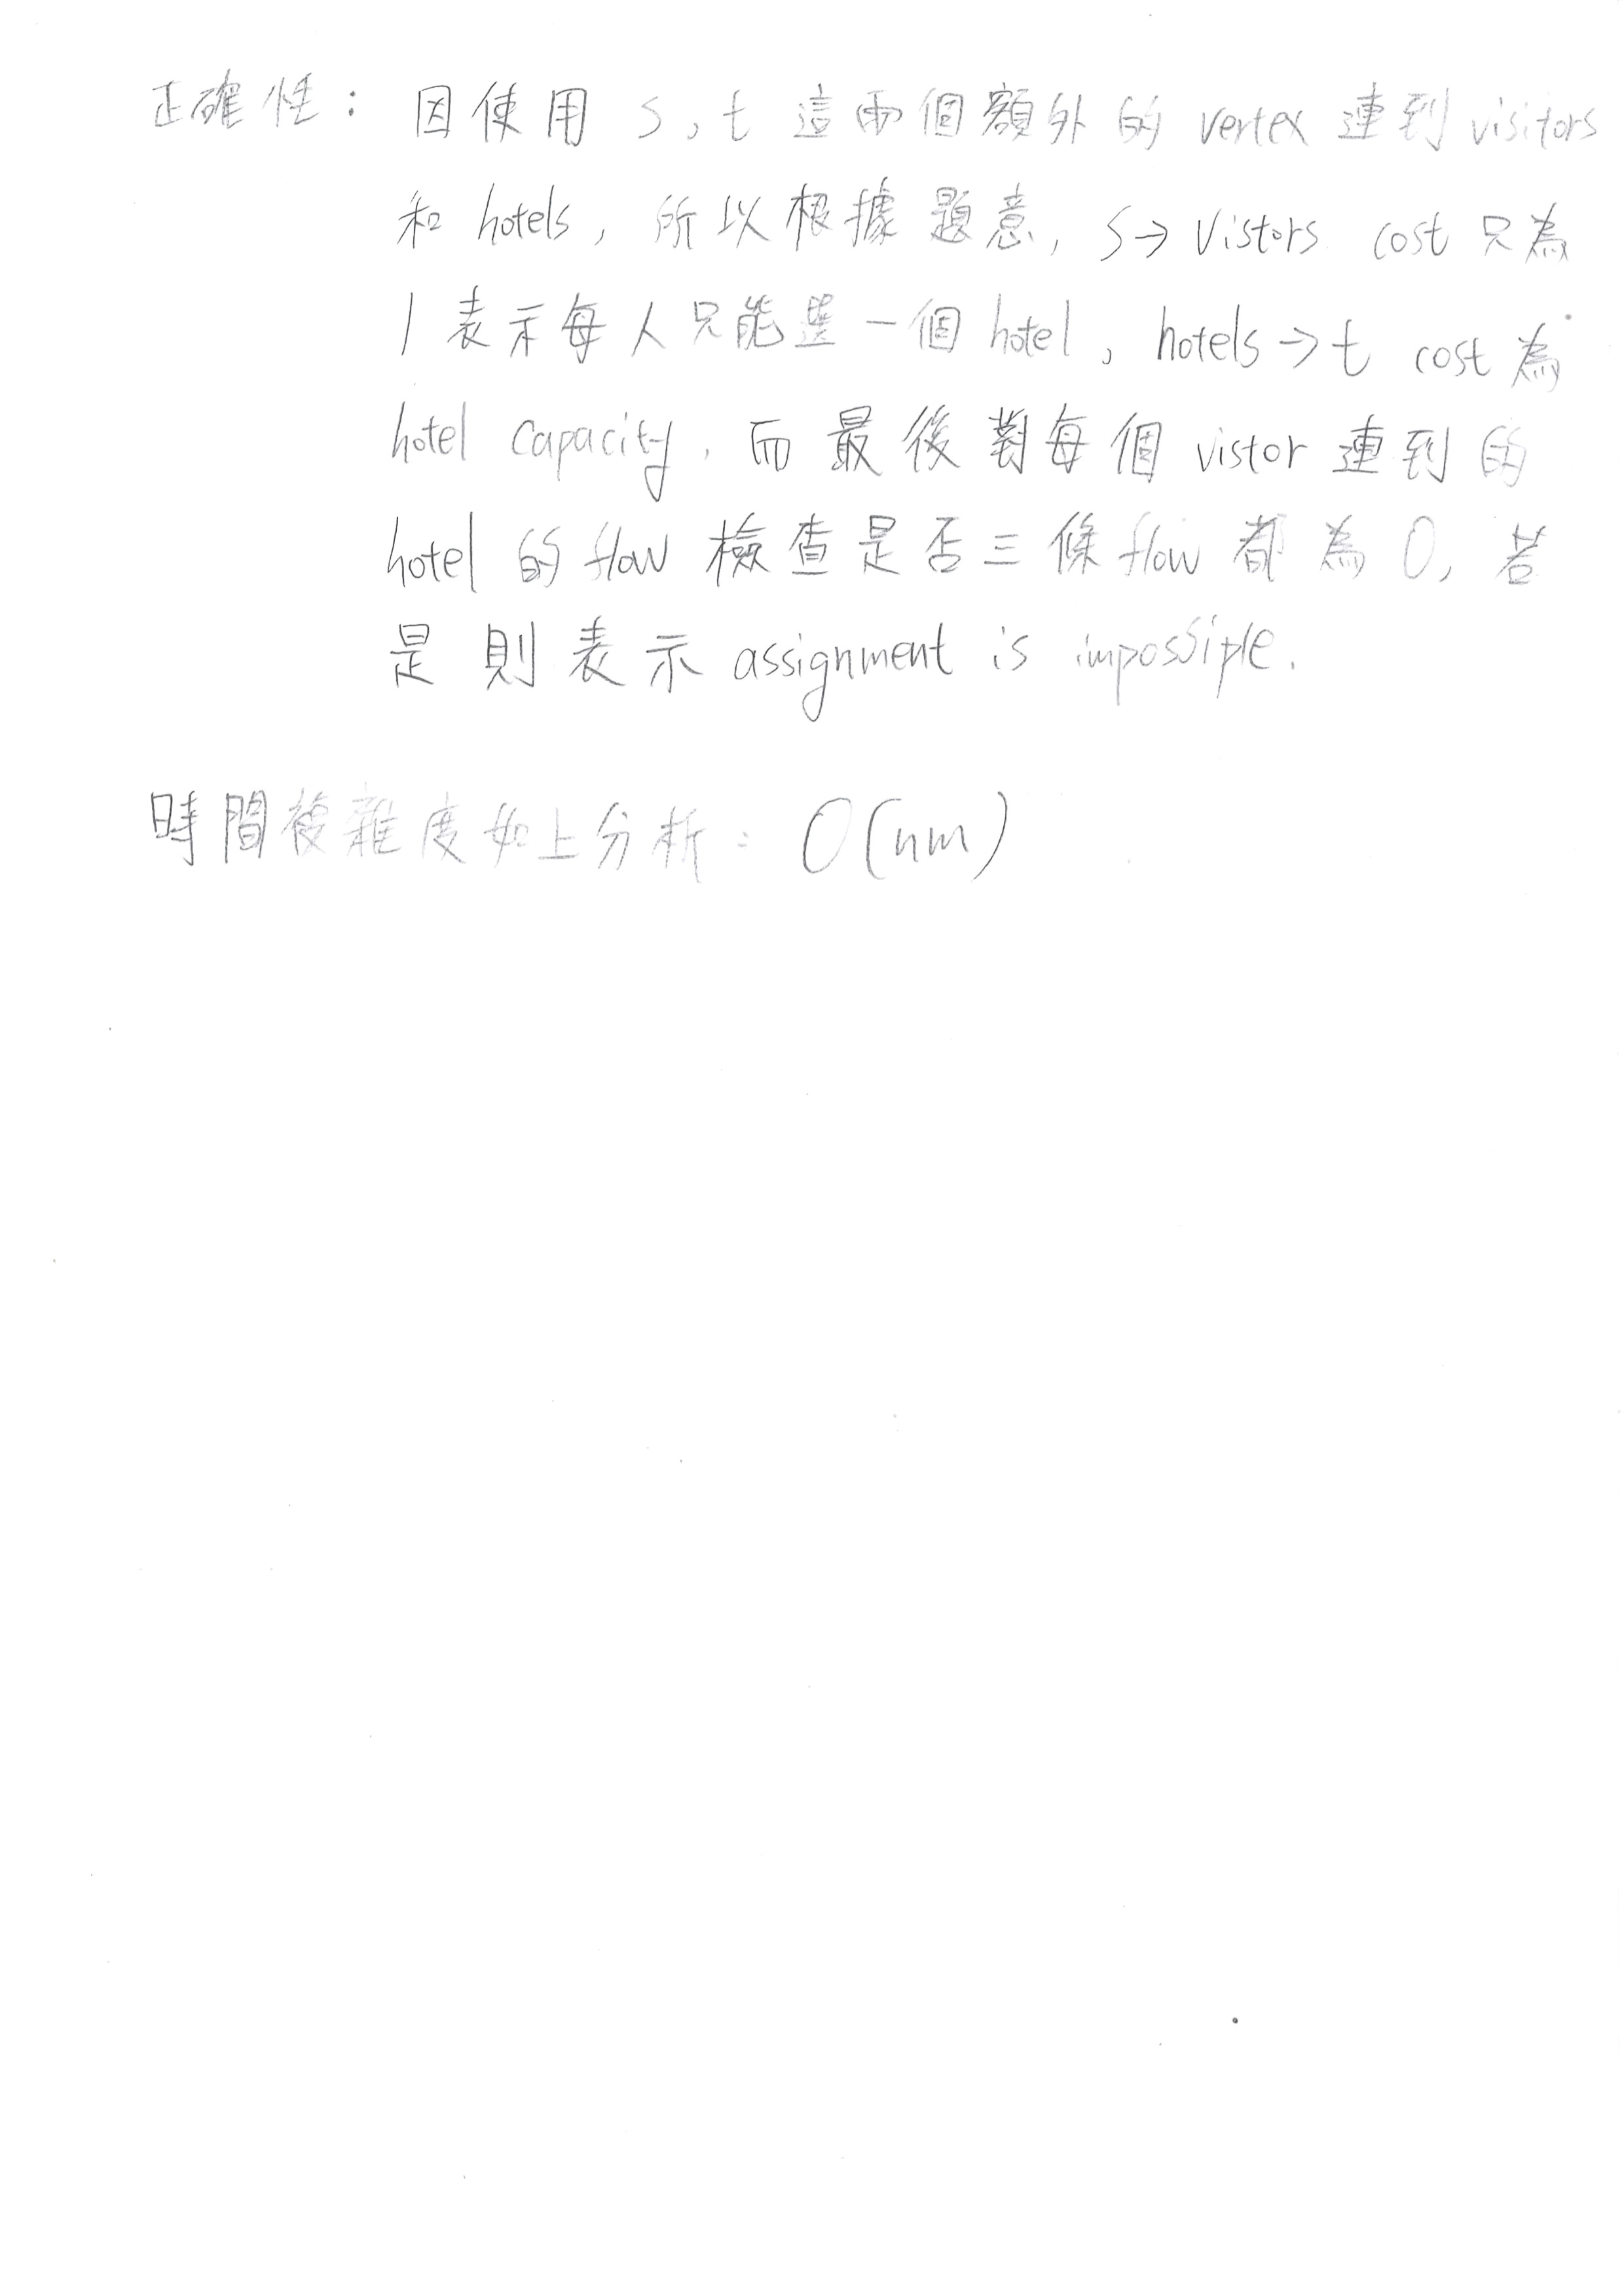 正確性： 因使用 s, t 這兩個額外的 vertex 連到 visitors
和 hotels, 所以根據題意, s→ Vistors cost 只為
1 表示每人只能選一個 hotel, hotels → t cost 為
hotel capacity, 而最後對每個 vistor 連到的
hotel 的 flow 檢查是否三條 flow 都為 0, 若
是則表示 assignment is impossiple.
時間複雜度如上分析： O(nm)